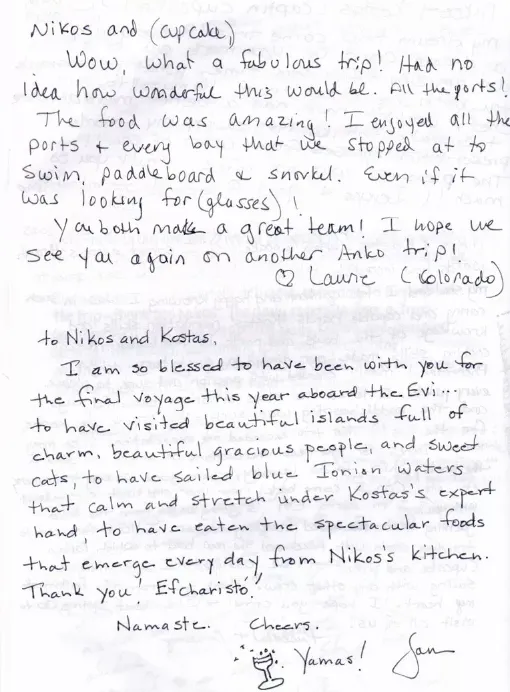 Nikos and (cupcake)
Wow, what a fabulous trip! Had no
idea how wonderful this would be. All the ports!
The food was amazing! I enjoyed all the
ports + every bay that we stopped at to
swim, paddleboard & snorkel. Even if it
was looking for (glasses)!
You both make a great team! I hope we
see you again on another Anko trip!
♡ Laurie (Colorado)
to Nikos and Kostas,
I am so blessed to have been with you for
the final voyage this year aboard the Evi...
to have visited beautiful islands full of
charm, beautiful gracious people, and sweet
cats, to have sailed blue Ionion waters
that calm and stretch under Kostas's expert
hand, to have eaten the spectacular foods
that emerge every day from Nikos's kitchen.
Thank you! Efcharistó!
Namaste. Cheers.
Yamas! Jan